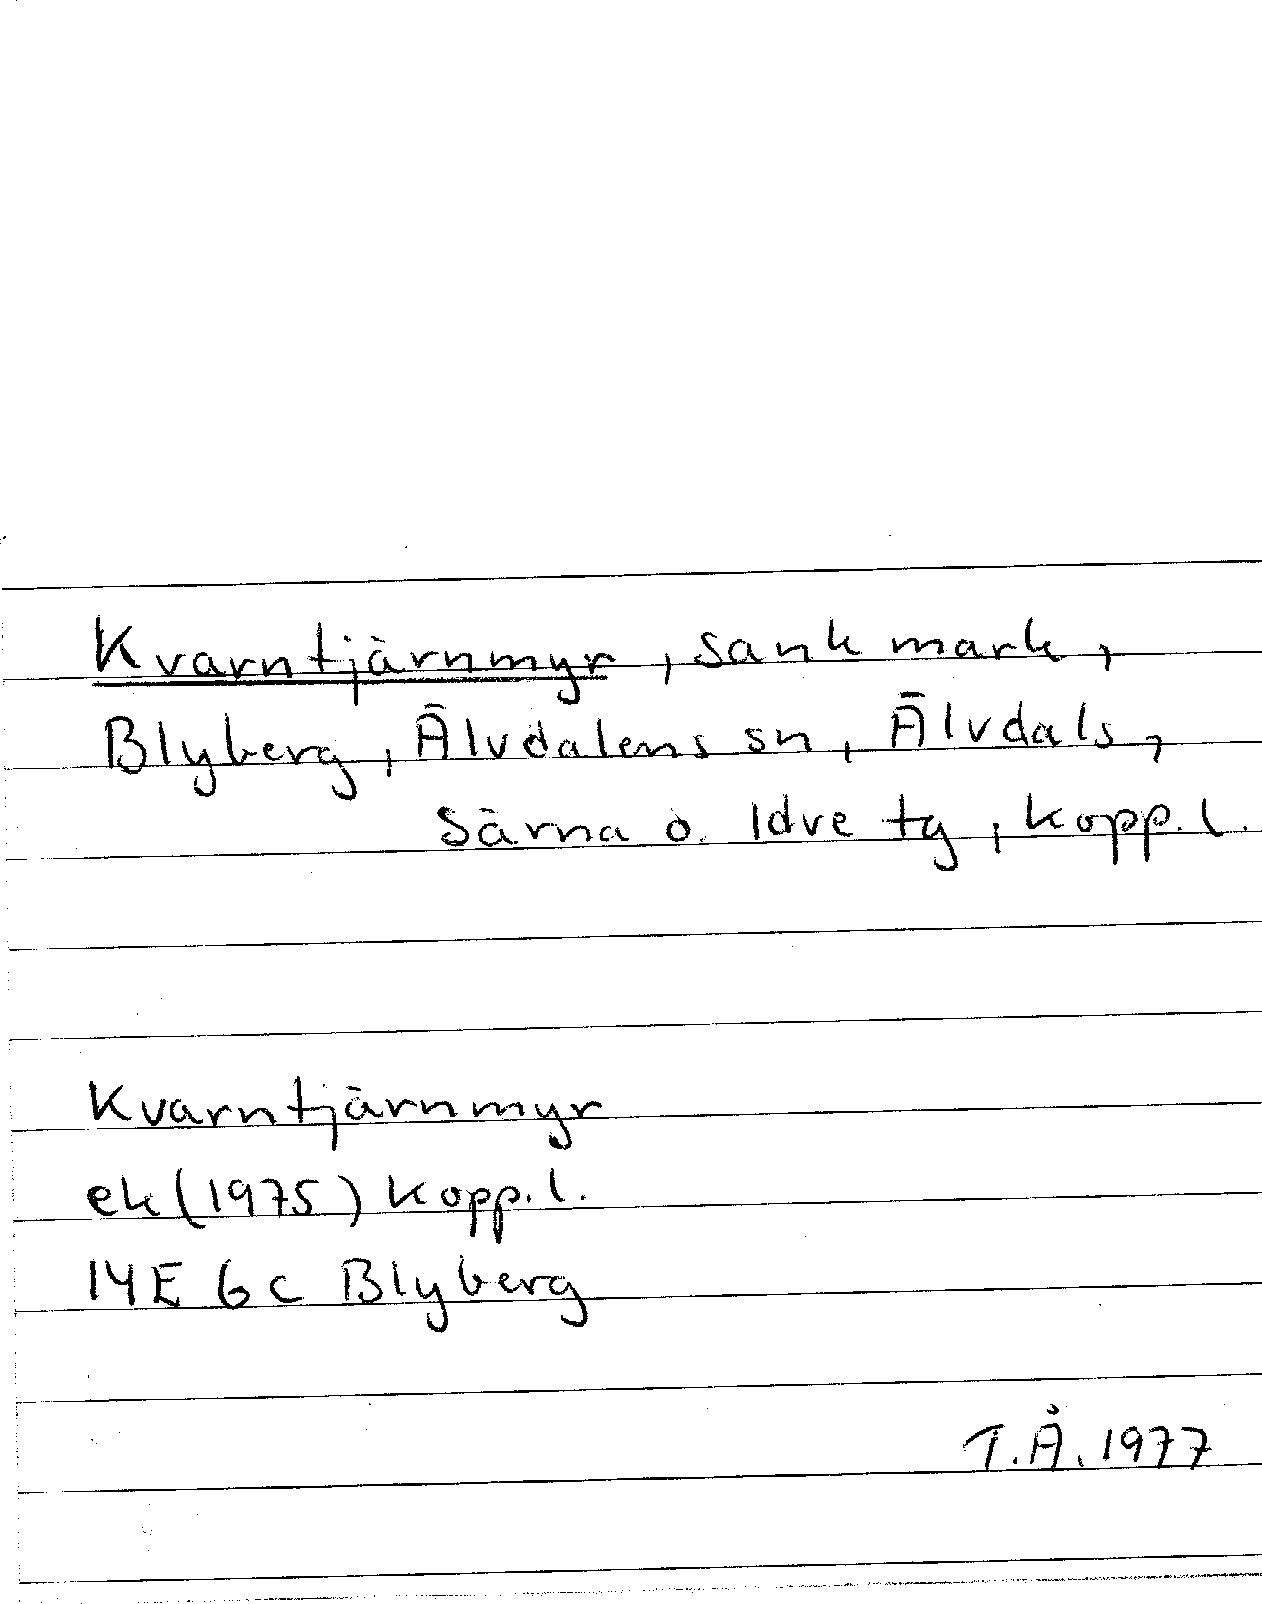 Kvarntjärnmyr, sank mark,
Blyberg, Älvdalens sn, Älvdals,
Särna o. Idre tg, Kopp. l.
Kvarntjärnmyr
ek (1975) Kopp. l.
14E 6c Blyberg
T.Å. 1977